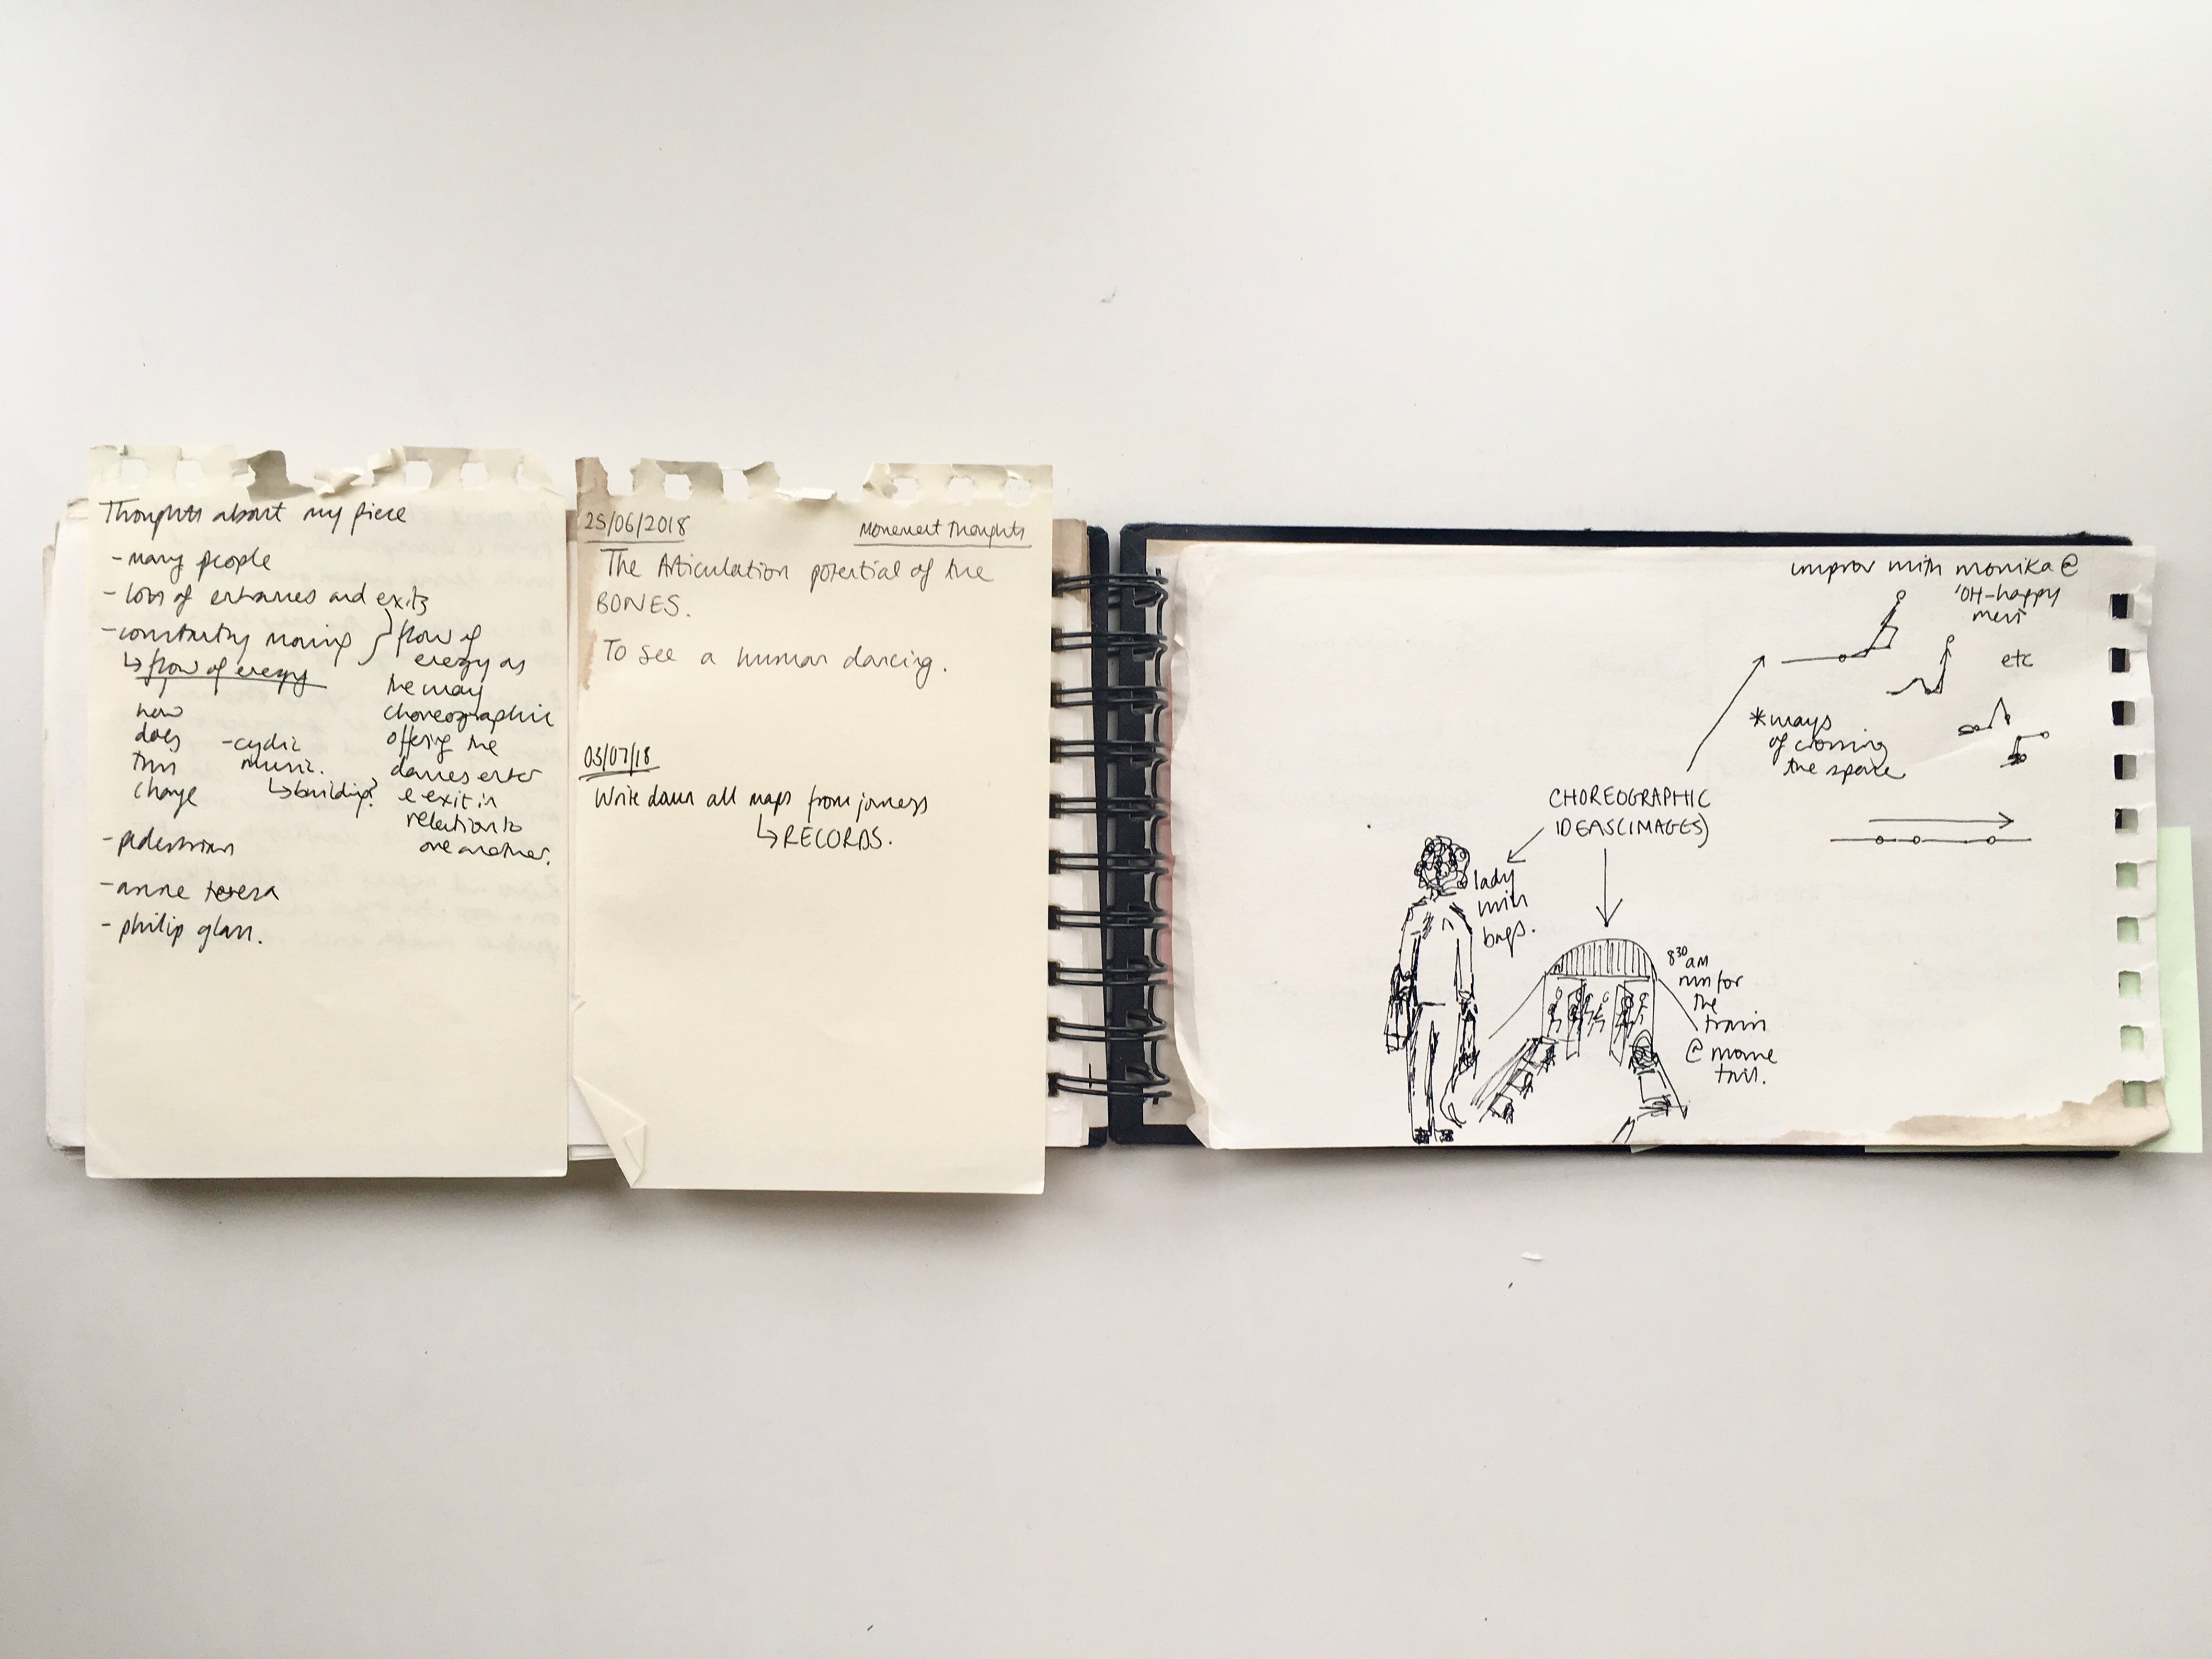 Thoughts about my piece
- many people
- lots of entrances and exits
- constantly moving
↳ flow of energy
how
does
this
change
- cyclic
music.
↳ building?
flow of
energy as
the way
choreographic
offering the
dancers enter
& exit in
relation to
one another.
- pedestrian
- anne teresa
- philip glass.
25/06/2018
Movement Thoughts
The Articulation potential of the
BONES.
To see a human dancing.
03/07/18
Write down all maps from journeys
↳ RECORDS.
improv with monika @
'OH-happy
etc
* ways
of crossing
the space
CHOREOGRAPHIC
IDEAS (IMAGES)
lady
with
bags.
8³⁰ am
run for
the
train
@